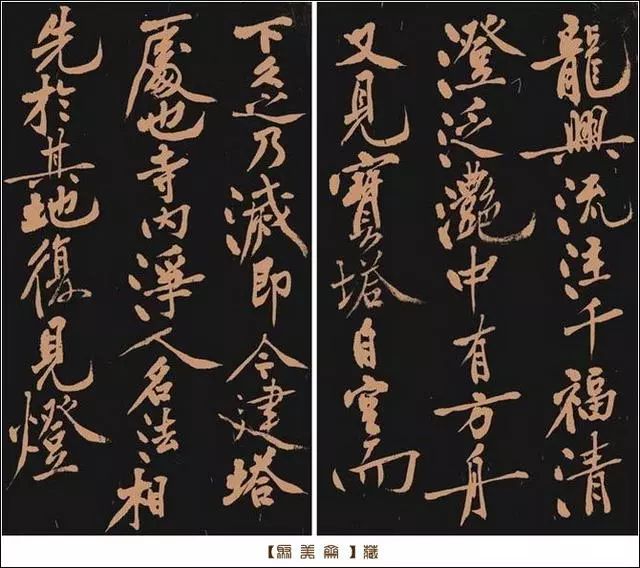 龍興流注千福清
澄泛灧中有方舟
又見寶塔自空而
下久之乃滅即今建塔
處也寺内淨人名法相
先於其地復見燈
【聚美齋】藏